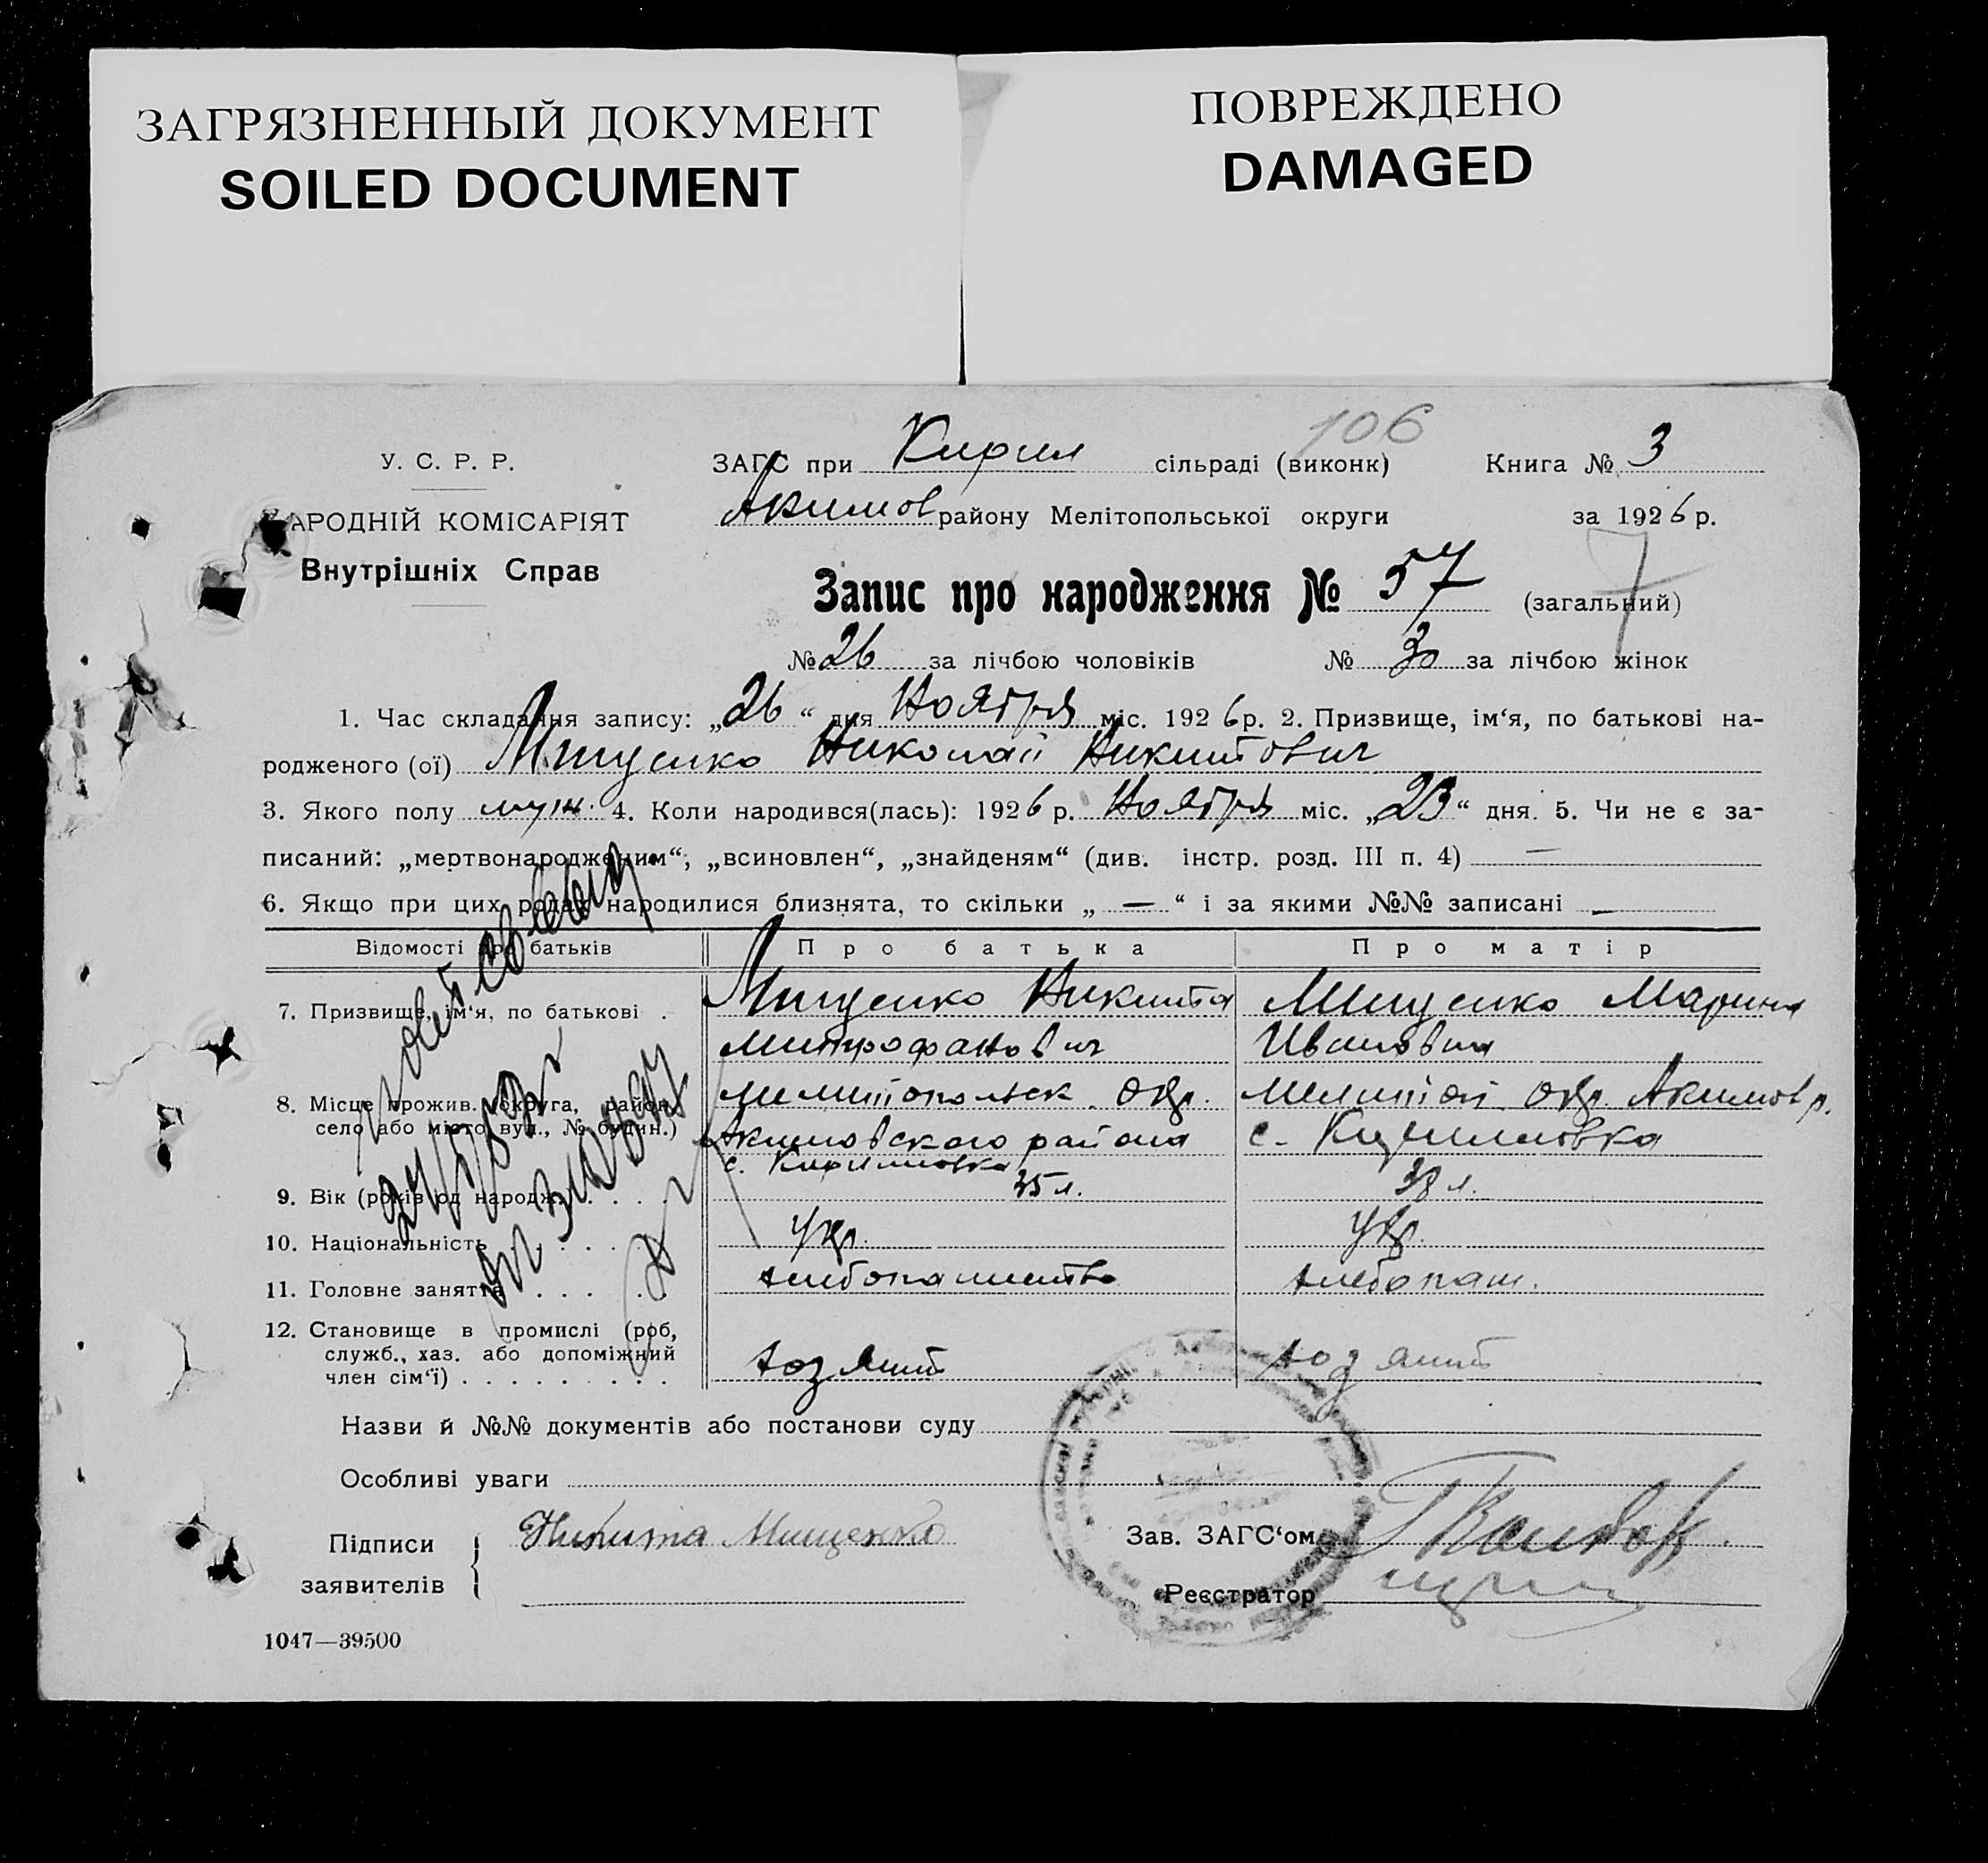 ЗАГРЯЗНЕННЫЙ ДОКУМЕНТ
SOILED DOCUMENT
ПОВРЕЖДЕНО
DAMAGED
106
У. С. Р. Р.
АРОДНІЙ КОМІСАРІЯТ
Внутрішніх Справ
ЗАГС при Кирил сільраді (виконк) Книга № 3
Акимов району Мелітопольської округи за 1926 р.
Запис про народження № 57 (загальний)
7
№ 26 за лічбою чоловіків № 30 за лічбою жінок
1. Час складання запису: „26“ дня Ноября міс. 1926 р. 2. Призвище, ім‘я, по батькові на-
родженого (ої) Мищенко Николай Никитович
3. Якого полу муж. 4. Коли народився(лась): 1926 р. Ноября міс. „23“ дня. 5. Чи не є за-
писаний: „мертвонародженим“, „всиновлен“, „знайденям“ (див. інстр. розд. III п. 4) —
6. Якщо при цих родах народилися близнята, то скільки „ — “ і за якими №№ записані —
Відомості про батьків Про батька Про матір
7. Призвище, ім‘я, по батькові . Мищенко Никита Мищенко Марина
Митрофанович Ивановна
8. Місце прожив. (округа, район, Мелитопольск. окр. Мелитоп. окр. Акимов р.
село або місто вул., № будин.) Акимовского района с. Кирилловка
с. Кирилловка
9. Вік (років од народж. . . . . 35 л. 38 л.
10. Національність . . . . . Укр. Укр.
11. Головне заняття . . . . . хлебопашество хлебопаш.
12. Становище в промислі (роб,
служб., хаз. або допоміжний хозяин хозяин
член сім‘ї) . . . . . . . . .
Назви й №№ документів або постанови суду
Особливі уваги
Підписи Никита Мищенко Зав. ЗАГС‘ом
заявителів Реєстратор
1047—39500